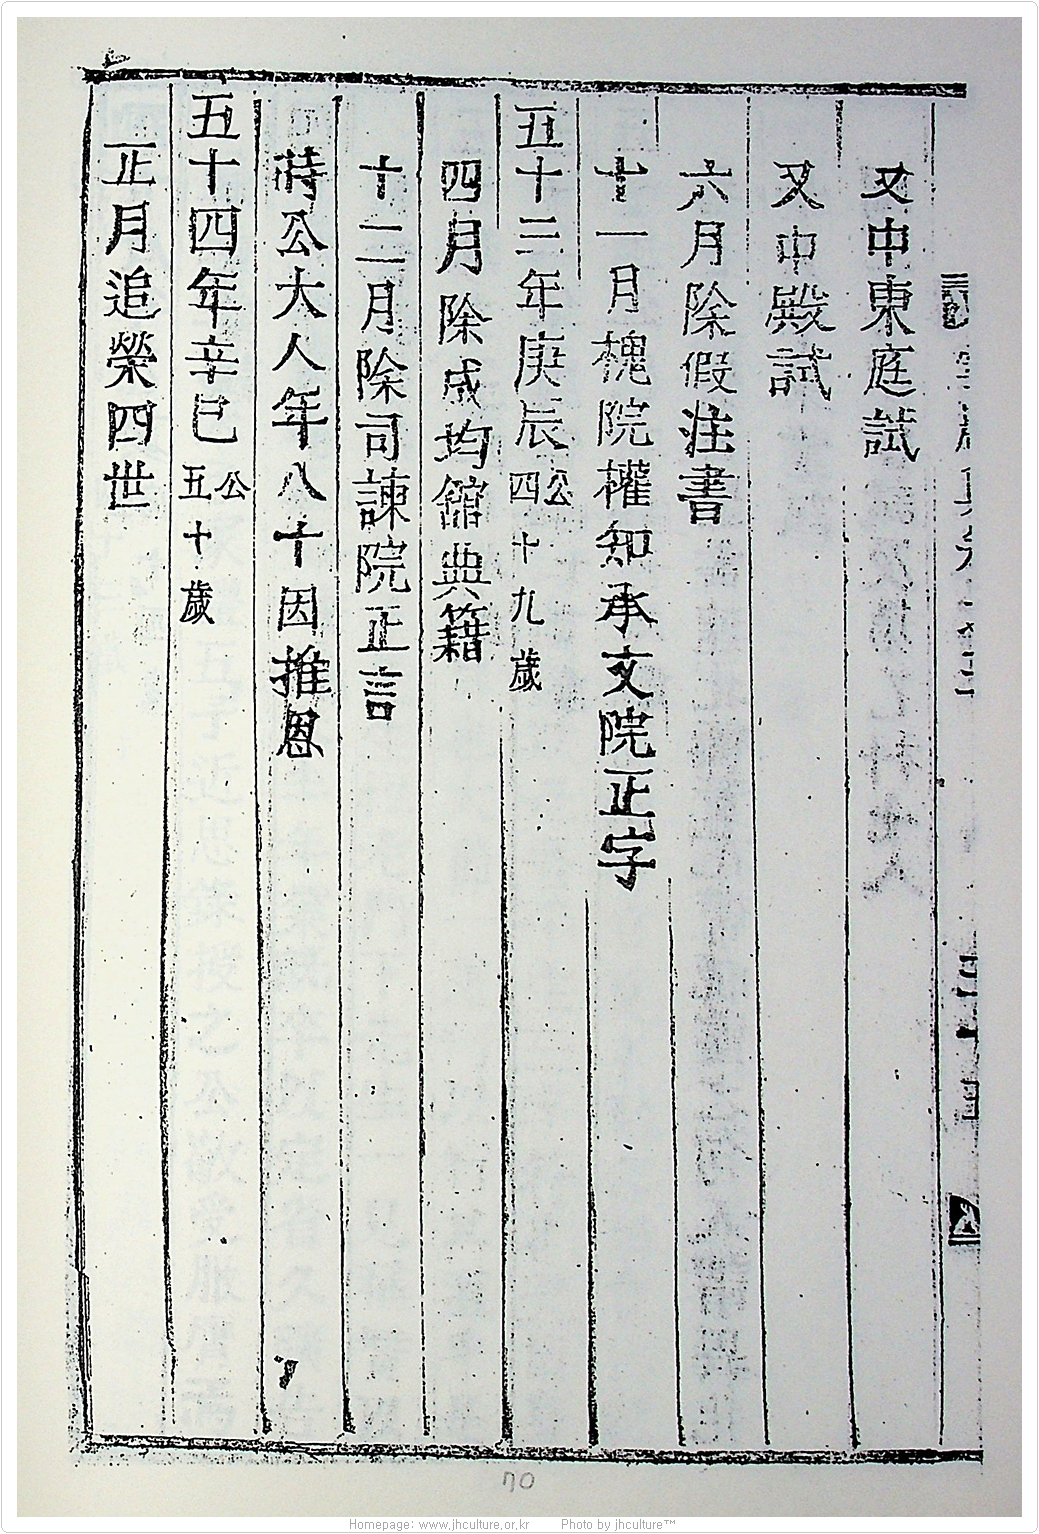 又中東庭試
又中殿試
六月除假注書
十一月槐院權知承文院正字
五十三年庚辰公四十九歲
四月除成均館典籍
十二月除司諫院正言
時公大人年八十因推恩
五十四年辛巳公五十歲
正月追榮四世
70
Homepage: www.jhculture.or.kr Photo by jhculture™